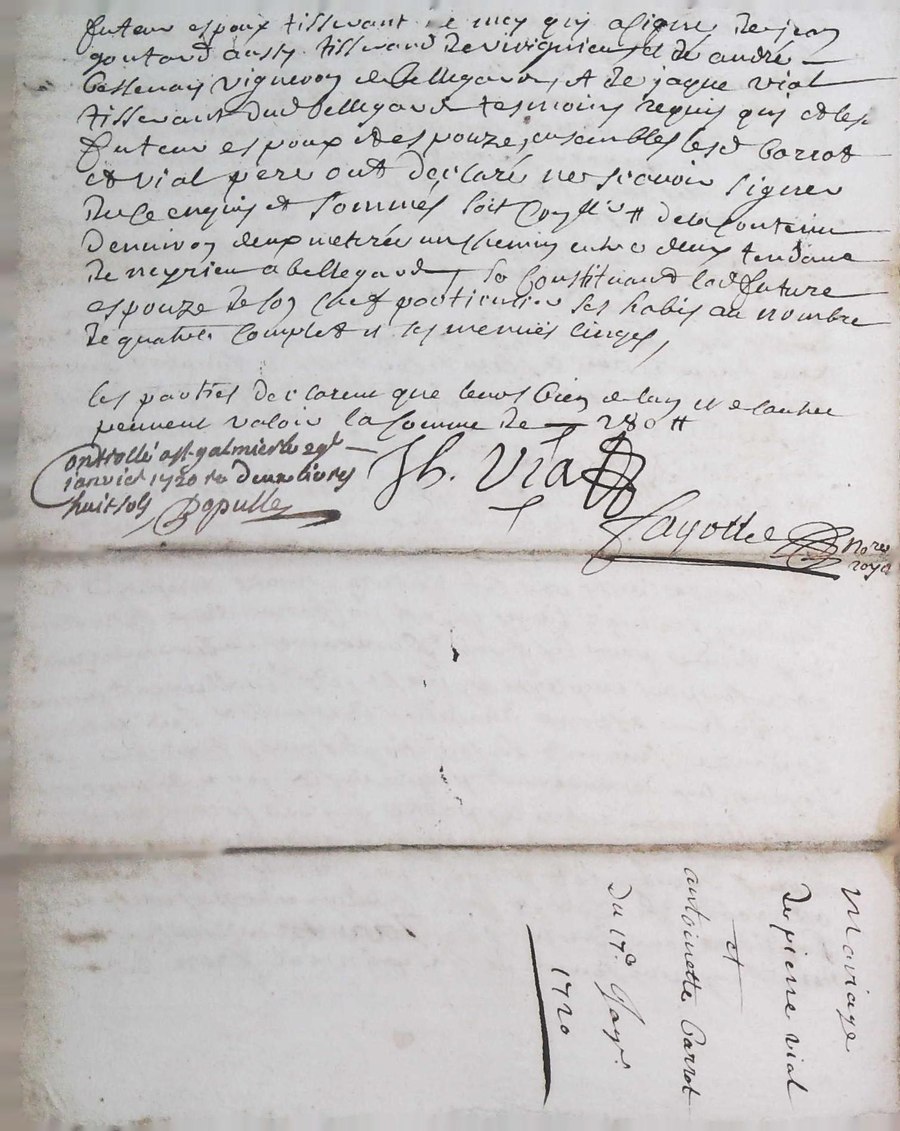 futeur espoux tisserant qui a signé de jean
goutard aussy tisserand de rivignieu et de andré
bessenay vigneron de bellegarde, et de jaque vial
tisserant dud bellegarde tesmoins requis qui et les
futeur espoux et espouze, ensembles lesd Carrot
et vial pere ont declaré ne scavoir signer
de ce enquis et sommés soit de la contenue
denviron deux metérée un chemin entre deux tendant
de meyrieu a bellegarde, se constituant lad future
espouze de son chef particulier ses habis au nombre
de quatre complet et ses menues linges,
les parties declarent que leurs bien de lun et de lautre
peuvent valoir la somme de 280 ₶
Controllé a st galmier le
janvier 1720 re deux livres
huit sols Populle
Jh. Vial
Jayolle Nore
royal
Mariage
de pierre vial
et
antoinette Carrot
du 17e Janvr
1720